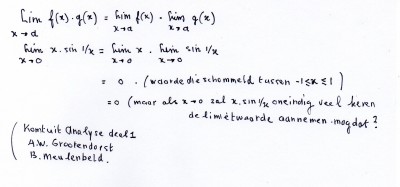 Lim f(x)·g(x) = lim f(x) · lim g(x)
x→a x→a x→a
lim x.sin 1/x = lim x . lim sin 1/x
x→0 x→0 x→0
= 0 . (waarde die schommelt tussen -1≤x≤1)
=0 (maar als x→0 zal x.sin 1/x oneindig veel keren
de limietwaarde aannemen. mag dat?
Komt uit Analyse deel 1
A.W. Grootendorst
B. Meulenbeld.